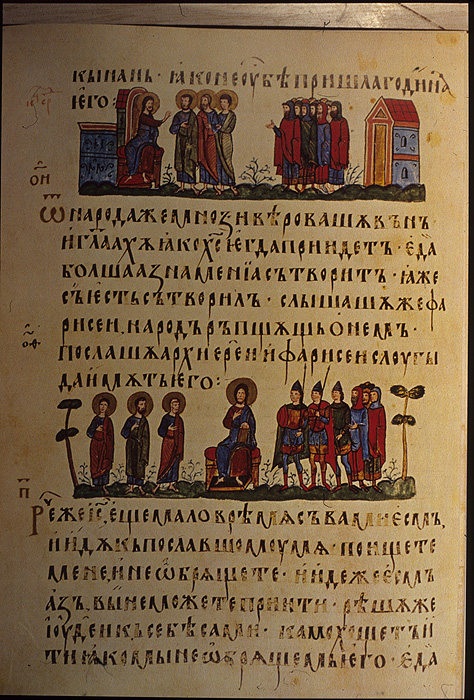 кы нань · ꙗко не оу бѣ пришла година
ѥго :
он
Ѿ народа же мнози вѣровашѧ вь нь ·
и гл҃аахѫ ꙗко х҃с ѥгда приидетъ · ѥда
болшаа знаменїа сътворитъ · ꙗже
съ ѥстъ сътворилъ · слышашѧ же фа
рисеи народъ ръпщѫщь о немъ ·
оѳ
послашѧ архиереи и фарисеи слоугы
да имѫтъ ѥго :
п
Рече же і҃с еще мало врѣмѧ съ вами есмъ,
и идѫ къ пославшомоу мѧ · поищете
мене, и не ѡбрѧщете · и идеже есмъ
азъ, вы не можете прїити · рѣшѧ же
їоудеи къ себѣ сами · камо хощетъ и
ти ꙗко мы не ѡбрѧщемъ его · ѥда